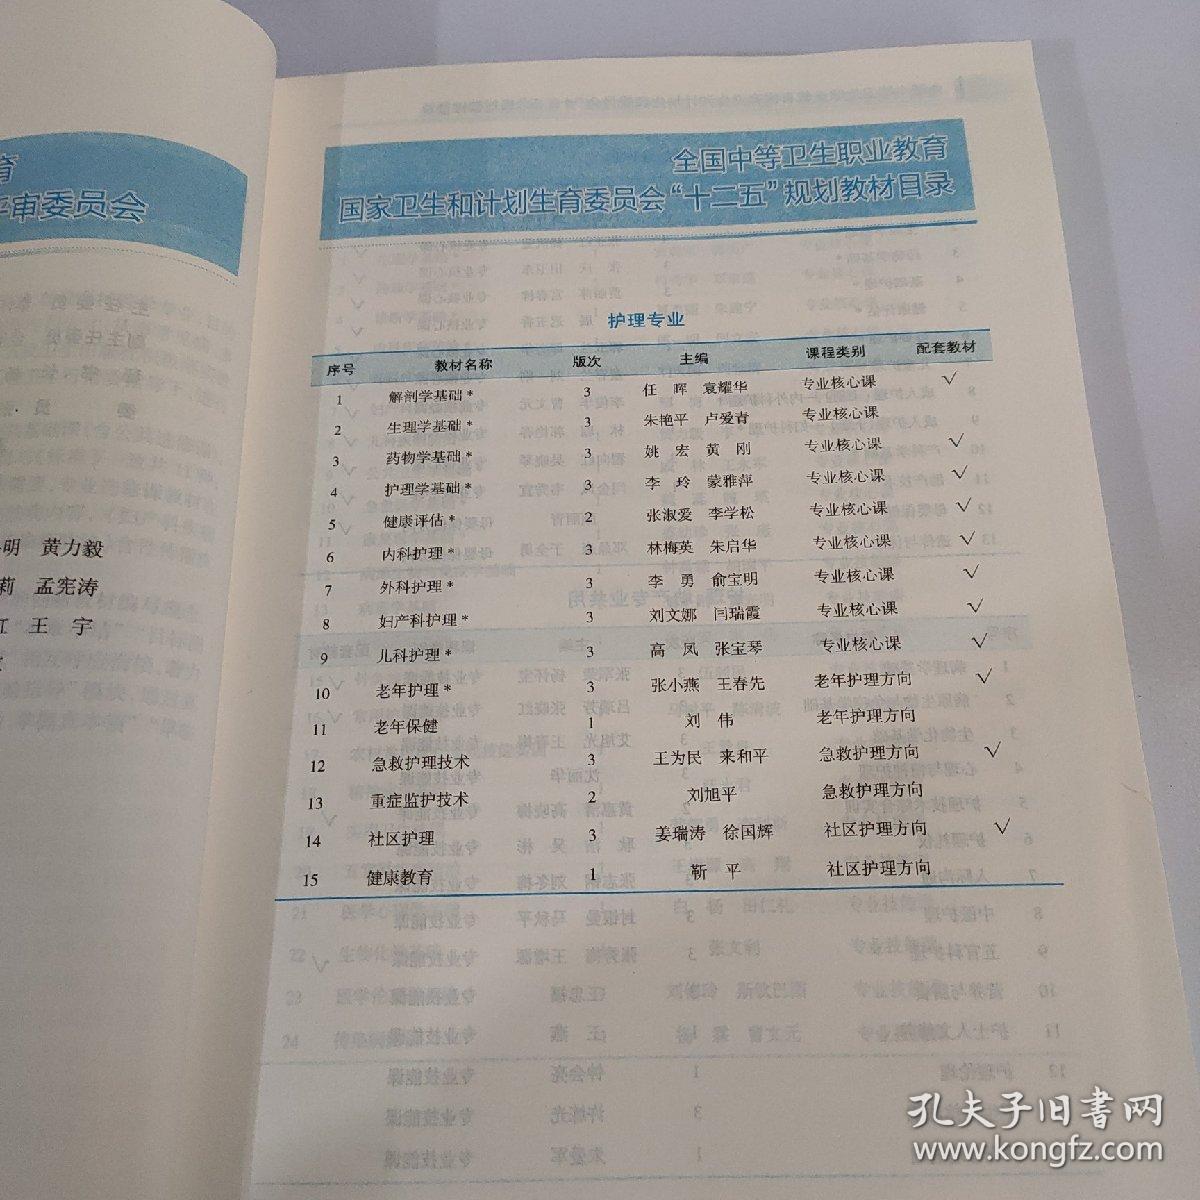 育
平审委员会
明 黄力毅
莉 孟宪涛
江 王 宇
全国中等卫生职业教育
国家卫生和计划生育委员会“十二五”规划教材目录
护理专业
序号 教材名称 版次 主编 课程类别 配套教材
1 解剖学基础* 3 任 晖 袁耀华 专业核心课 √
2 生理学基础* 3 朱艳平 卢爱青 专业核心课
3 药物学基础* 3 姚 宏 黄 刚 专业核心课 √
4 护理学基础* 3 李 玲 蒙雅萍 专业核心课 √
5 健康评估* 2 张淑爱 李学松 专业核心课 √
6 内科护理* 3 林梅英 朱启华 专业核心课 √
7 外科护理* 3 李 勇 俞宝明 专业核心课 √
8 妇产科护理* 3 刘文娜 闫瑞霞 专业核心课 √
9 儿科护理* 3 高 凤 张宝琴 专业核心课 √
10 老年护理* 3 张小燕 王春先 老年护理方向 √
11 老年保健 1 刘 伟 老年护理方向
12 急救护理技术 3 王为民 来和平 急救护理方向 √
13 重症监护技术 2 刘旭平 急救护理方向
14 社区护理 3 姜瑞涛 徐国辉 社区护理方向 √
15 健康教育 1 靳 平 社区护理方向
孔夫子旧书网
www.kongfz.com